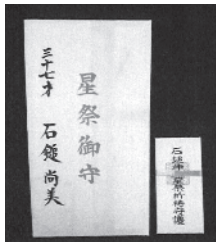 星祭御守
三十七才 石鎚尚美
石鎚山 星祭祈祷守護